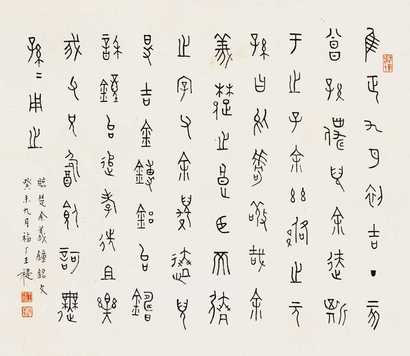 隹正九月初吉丁亥
曾孫僕兒余迭斯
于之子余茲佫之元
孫曰於嘑敬哉余
義楚之良臣而
之字父余兒
得吉金鎛鋁台鑄
鐘台追孝先且樂
我父兄飲飤訶舞
孫〻用之
臨楚余義鐘銘文
癸未九月福厂王禔